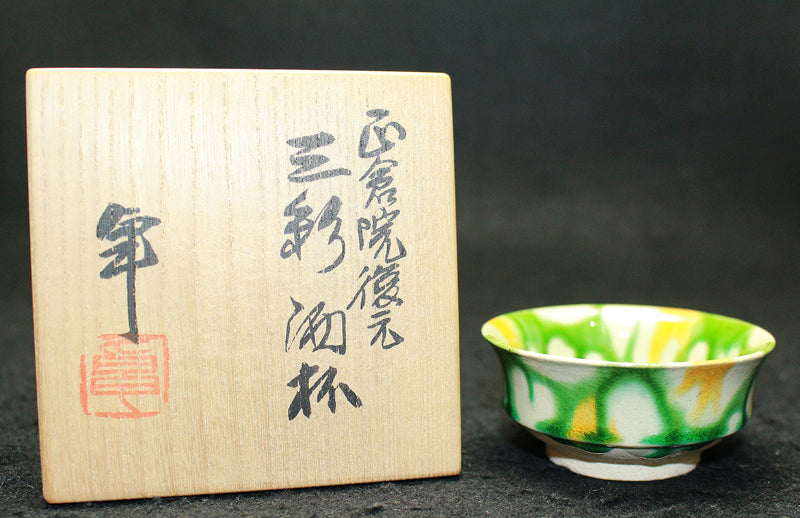 正倉院復元
三彩酒杯